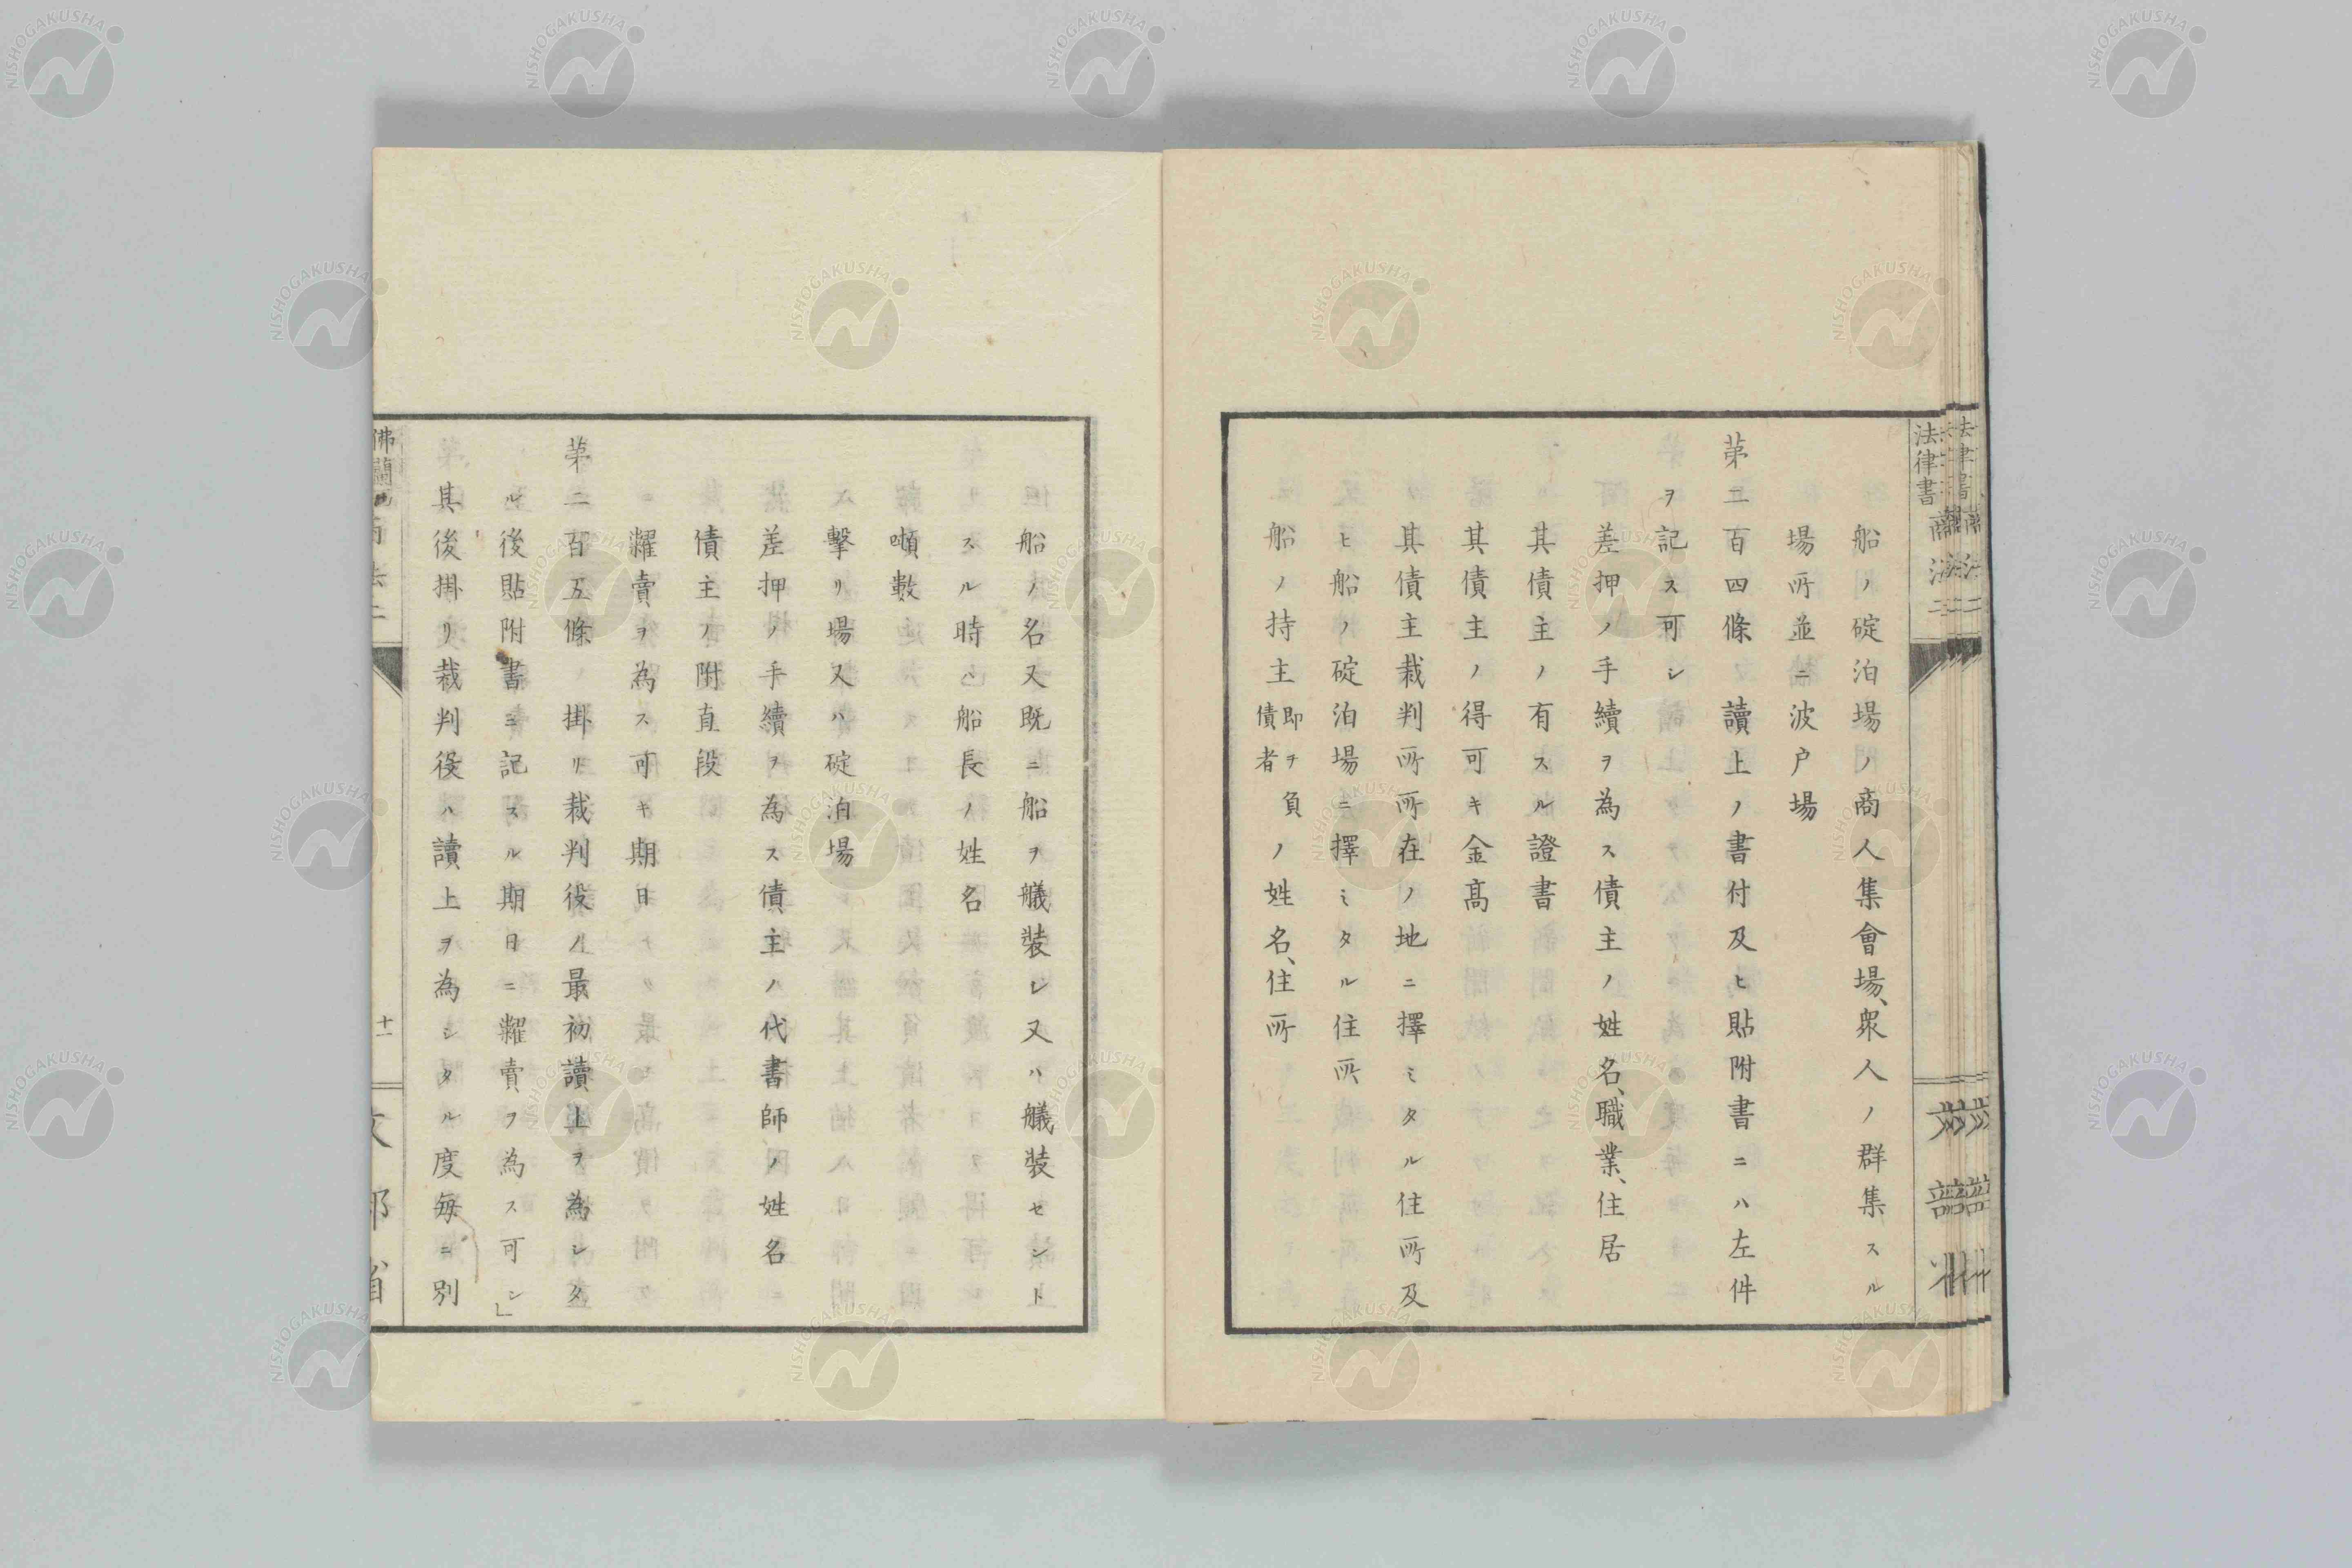 船ノ碇泊場ノ商人集會場、衆人ノ群集スル
場所並ニ波戸場
第二百四條　讀上ノ書付及ヒ貼附書ニハ左件
ヲ記ス可シ
差押ノ手續ヲ為ス債主ノ姓名、職業、住居
其債主ノ有スル證書
其債主ノ得可キ金髙
其債主裁判所所在ノ地ニ擇ミタル住所及
ヒ船ノ碇泊場ニ擇ミタル住所
船ノ持主即ヲ負債者ノ姓名、住所
船ノ名又既ニ船ヲ艤装シ又ハ艤装セシト
スル時ハ船長ノ姓名
噸數
擊リ場又ハ碇泊場
差押ノ手續ヲ為ス債主ノ代書師ノ姓名
債主ノ附直段
糶賣ヲ為ス可キ期日
第二百五條　掛リ裁判役ノ最初讀上ヲ為シタ
ル後貼附書ニ記スル期日ニ糶賣ヲ為ス可シ」
其後掛リ裁判役ハ讀上ヲ為シタル度毎ニ別
法律書　商法二
佛蘭
十一
文部省
NISHOGAKUSHA